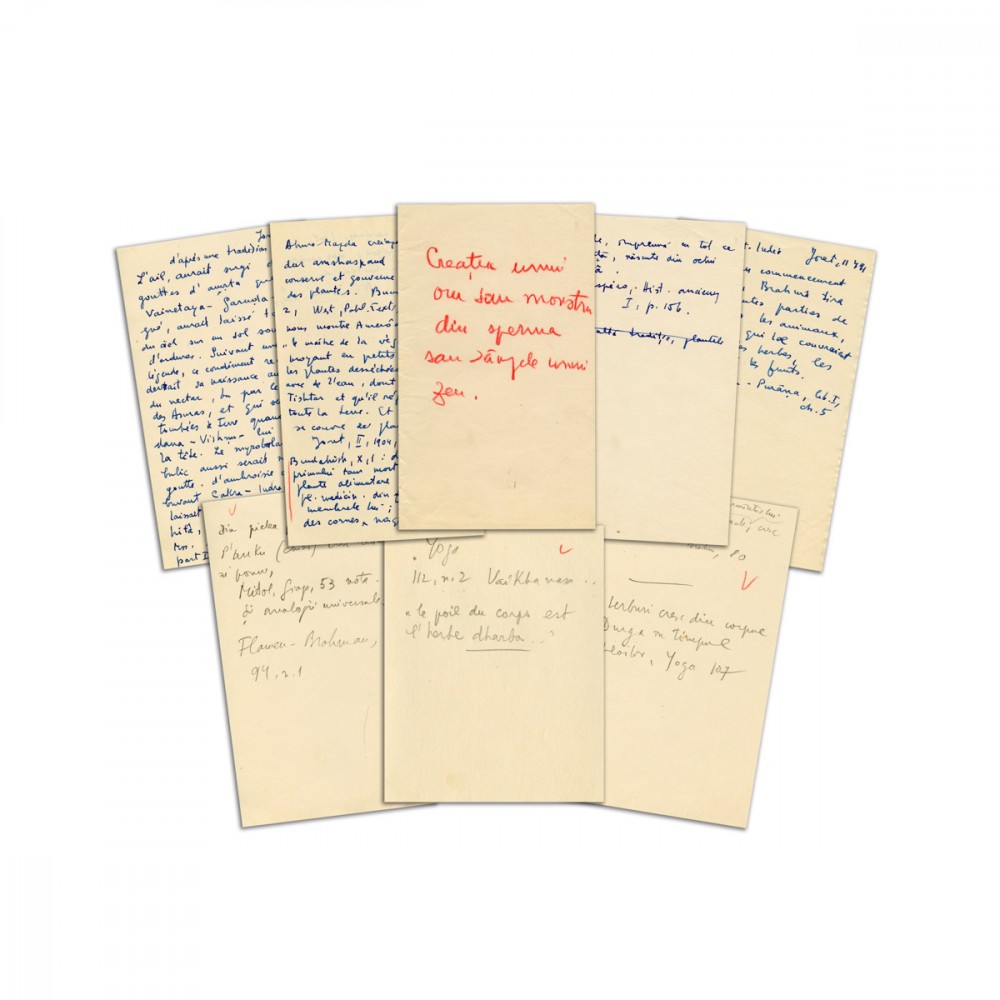 d'après une tradition
L'ail, aurait surgi d
gouttes d'amṛta que
Vainateya-Garuda
gué, aurait laissé t
du ciel sur un sol sou
d'ordures. Suivant un
légende, ce condiment re
devrait sa naissance au
du nectar, bu par le
des Asuras, et qui se
tombées à terre quan
dana-Vishnu- lui
la tête. Le myrobola
bulic aussi serait n
goutte d'ambroisie
buvant Çakra-Indra
laissait
hitâ,
tro,
part I
Ahura-Mazda
des amshaspand
conserve et gouverne
des plantes. Bun
2, West, Pahl. Text
nous montre Amerôd
"le maître de la vég
broyant en petits
les plantes desséchées
avec de l'eau, dont
Tishtar et qu'il ré
toute la terre. Et
se couvre de pla
Joret, II, 1904,
Bundahish, X, 1 : d
primului taur mort
plante alimentare
pl. medicin. din t
membrele lui ;
des cornes,
Creația unui
om sau monstru
din sperma
sau sângele unui
zeu.
de, împreună cu tot ce
tă, născute din ochii
Hist. ancienne
I, p. 156.
plantele
t. Indes Joret, II
commencement
Brahmâ tira
tes parties de
les animaux,
qui loe couvraient
herbes, les
les fruits.
- Purâna, lib. I,
ch. 5
din pielea
și poam,
Mitol. Giap, 53 nota.
și analogii universale
Flamen-Brahman,
94, n. 1
Yoga
112, n. 2 Vaikhanasa..
"le poil du corps est
l'herbe dharba.."
80
ierburi cresc din corpul
Durga în timpul
Yoga 107